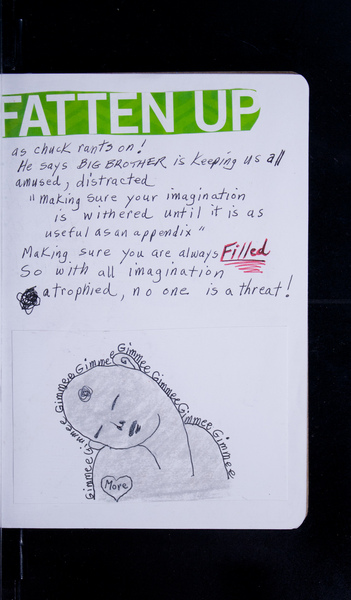 FATTEN UP
as chuck rants on!
He says BIG BROTHER is keeping us all
amused, distracted
"making sure your imagination
is withered until it is as
useful as an appendix"
Making sure you are always Filled
So with all imagination
atrophied, no one is a threat!
Gimmee Gimmee Gimmee Gimmee Gimmee Gimmee Gimmee Gimmee Gimmee
More